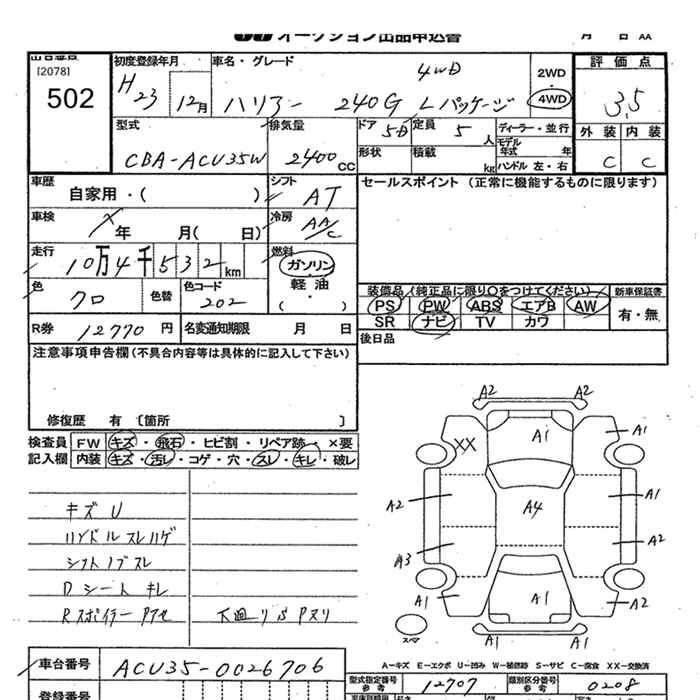 オークション出品申込書 月 日
出品番号
[2078]
502
初度登録年月
H23 12月
車名・グレード
4WD
ハリアー 240G Lパッケージ
2WD
4WD
評価点
3.5
外装 内装
C C
型式
CBA-ACU35W
排気量
2400 CC
ドア 5D
定員 5 人
形状 積載 kg
ディーラー・並行
モデル年式 年
ハンドル 左・右
車歴 自家用・( )
シフト AT
セールスポイント (正常に機能するものに限ります)
車検 年 月( 日)
冷房 AA/C
走行 10万4千532km
燃料 ガソリン
軽油
・( )
色 クロ 色替
色コード 202
装備品 (純正品に限り○をつけてください) 新車保証書
PS PW ABS エアB AW 有・無
SR ナビ TV カワ
R券 12770 円 名変通知期限 月 日
後日品
注意事項申告欄(不具合内容等は具体的に記入して下さい)
修復歴 有 [箇所 ]
検査員 FW キズ・飛石・ヒビ割・リペア跡・×要
記入欄 内装 キズ・汚レ・コゲ・穴・スレ・キレ・破レ
キズ U
ハンドルスレハゲ
シフトノブスレ
Dシートキレ
Rスポイラーアセ 下廻りSアリ
A2 A2
A1 A1
XX
A2 A4 A1
A3 A2
A1 A1 A2
A1 A1
スペア
A-キズ E-エクボ U-凹み W-補修跡 S-サビ C-腐食 XX-交換済
車台番号 ACU35-0026706
型式指定番号 参考 12707 類別区分番号 参考 0208
登録番号